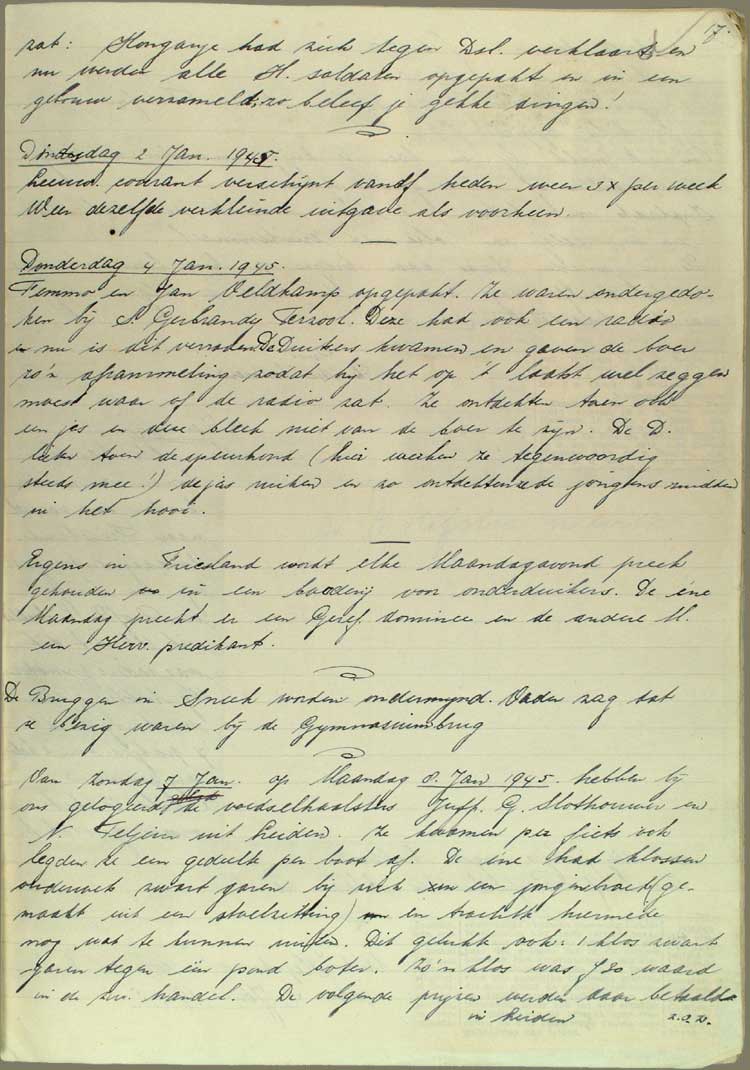 17.
zat: Hongarije had zich tegen Dsl. verklaart en
nu werden alle H. soldaten opgepakt en in een
gebouw verzameld, zo beleef je gekke dingen!
Dinsdag 2 Jan. 1945.
Leeuw. courant verschijnt vanaf heden weer 3 x per week
Weer dezelfde verkleinde uitgave als voorheen.
Donderdag 4 Jan. 1945.
Femmo en Jan Veldkamp opgepakt. Ze waren ondergedo-
ken bij S. Gerbrandy Tersool. Deze had ook een radio
en nu is dit verraden. De Duitsers kwamen en gaven de boer
zo'n aframmeling zodat hij het op 't laatst wel zeggen
moest waar of de radio zat. Ze ontdekten toen ook
een jas en deze bleek niet van de boer te zijn. De D.
lieten toen de speurhond (hier werken ze tegenwoordig
steeds mee!) de jas ruiken en zo ontdekten ze de jongens midden
in het hooi.
Ergens in Friesland wordt elke Maandagavond preek
gehouden in een boerderij voor onderduikers. De éne
Maandag preekt er een Geref. dominee en de andere M.
een Herv. predikant.
De Bruggen in Sneek worden ondermijnd. Vader zag dat
ze bezig waren bij de Gymnasiumbrug
Van Zondag 7 Jan. op Maandag 8. Jan 1945. hebben bij
ons gelogeerd de voedselhaalsters Juffr. G. Slothouwer en
N. Feijen uit Leiden. Ze kwamen per fiets ook
legden ze een gedeelte per boot af. De éne had klossen
onderweg zwart garen bij zich en een jongensbroek (ge-
maakt uit een stoelzitting) en trachtte hiermede
nog wat te kunnen ruilen. Dit gelukte ook: 1 klos zwart
garen tegen één pond boter. Zo'n klos was f 30 waard
in de zw. handel. De volgende prijzen werden daar betaald
in Leiden z.o.z.